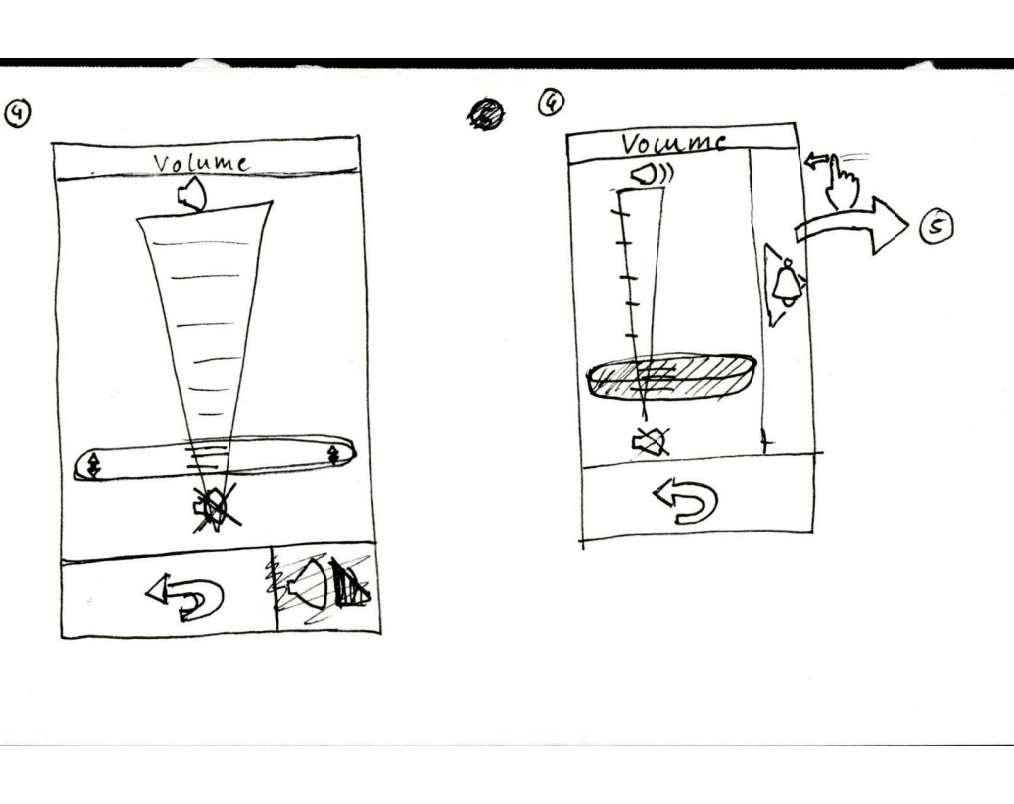 4
Volume
4
Volume
5